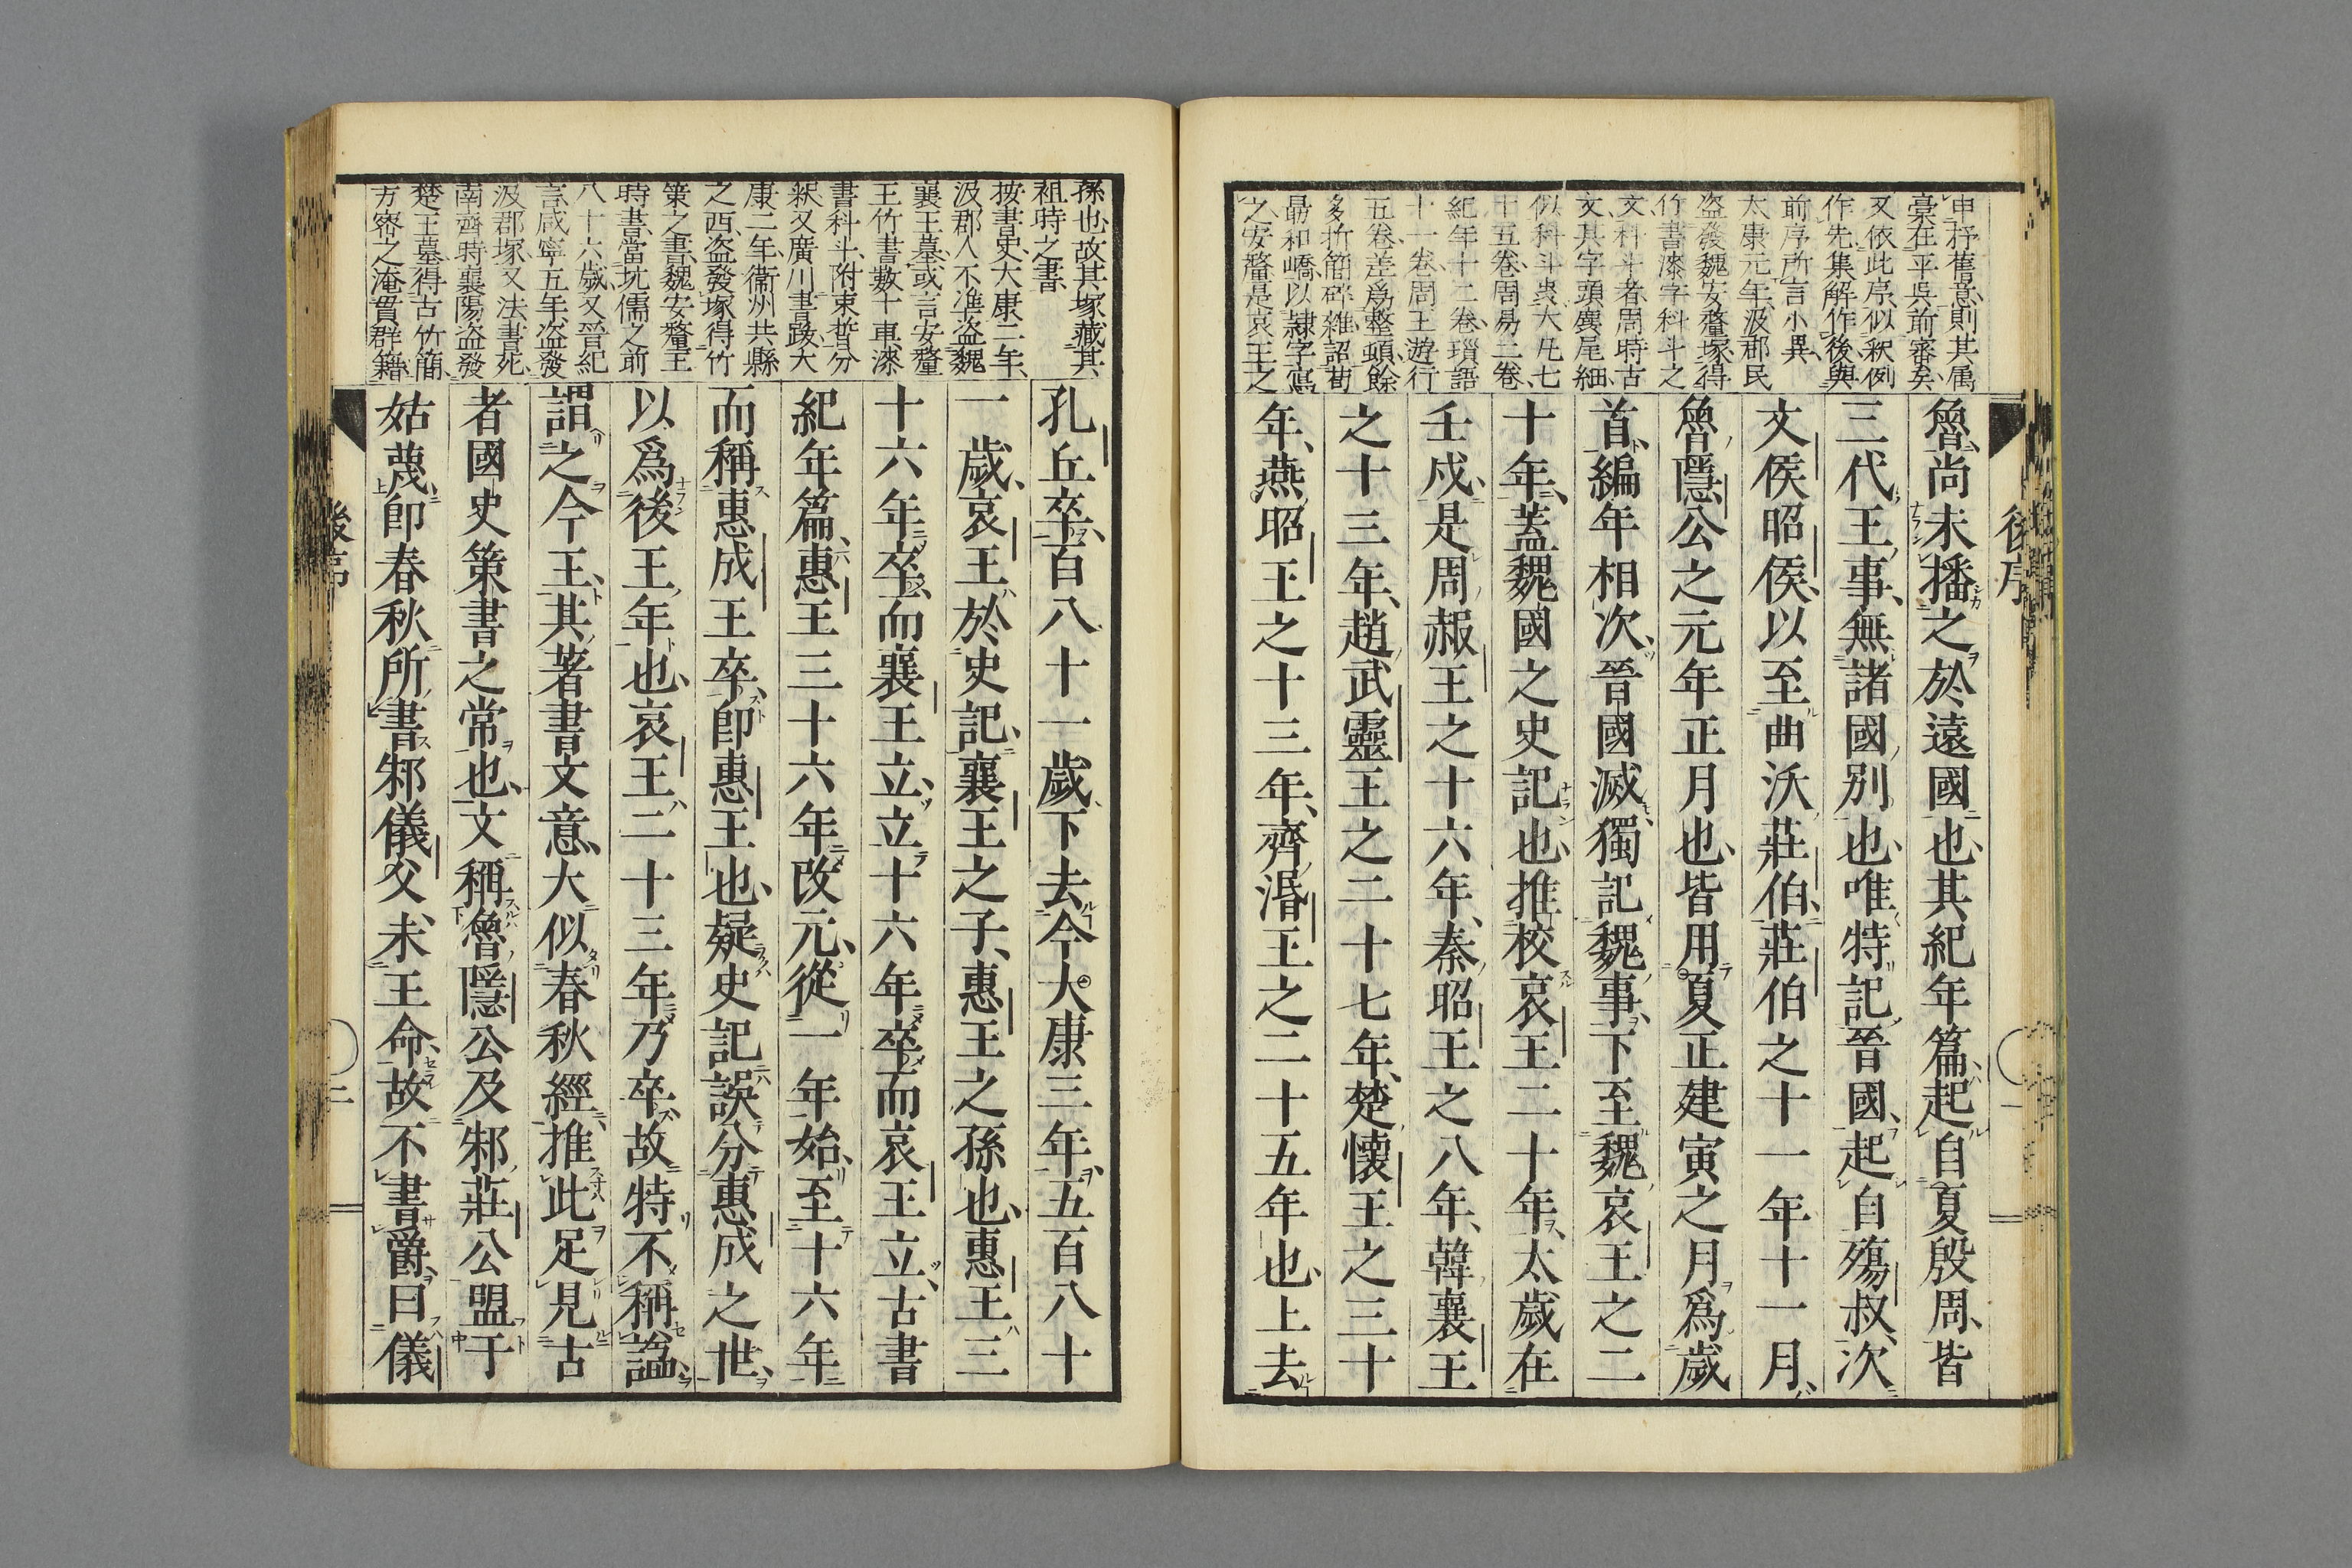 申杼舊意則其属
稾在平呉前審矣
又依此序似釈例
作先集解作後與
前序所言小異
太康元年汲郡民
盗發魏安釐塚得
竹書漆字科斗之
文科斗者周時古
文其字頭麤尾細
似科斗虫大凡七
十五卷周易二卷
紀年十二卷瑣語
十一卷周王遊行
五卷差為整頓餘
多折簡砕雑詔荀
勗和嶠以隷字寫
之安釐是哀王之
魯尚未播之於遠國也其紀年篇起自夏殷周皆
三代王事無諸國別也唯特記晉國起自殤叔次
文侯昭侯以至曲沃莊伯莊伯之十一年十一月
魯隱公之元年正月也皆用夏正建寅之月爲歲
首編年相次晉國滅獨記魏事下至魏哀王之二
十年蓋魏國之史記也推校哀王二十年太歲在
壬戍是周赧王之十六年秦昭王之八年韓襄王
之十三年趙武靈王之二十七年楚懷王之三十
年燕昭王之十三年齊湣王之二十五年也上去
後序
一
孫也故其塚藏其
祖時之書
按書史大康二年
汲郡人不準盗魏
襄王墓或言安釐
王竹書數十車漆
書科斗附束晳分
釈又廣川書跋大
康二年衞州共縣
之西盗發塚得竹
策之書魏安釐王
時書當坑儒之前
八十六歳又晉紀
言咸寧五年盗發
汲郡塚又法書苑
南齊時襄陽盗發
楚王墓得古竹簡
方密之淹貫群籍
孔丘卒百八十一歲下去今大康三年五百八十
一歲哀王於史記襄王之子惠王之孫也惠王三
十六年卒而襄王立立十六年卒而哀王立古書
紀年篇惠王三十六年改元從一年始至十六年
而稱惠成王卒即惠王也疑史記誤分惠成之世
以爲後王年也哀王二十三年乃卒故特不稱謚
謂之今王其著書文意大似春秋經推此足見古
者國史策書之常也文稱魯隱公及邾莊公盟于
姑蔑即春秋所書邾儀父未王命故不書爵曰儀
後序
二